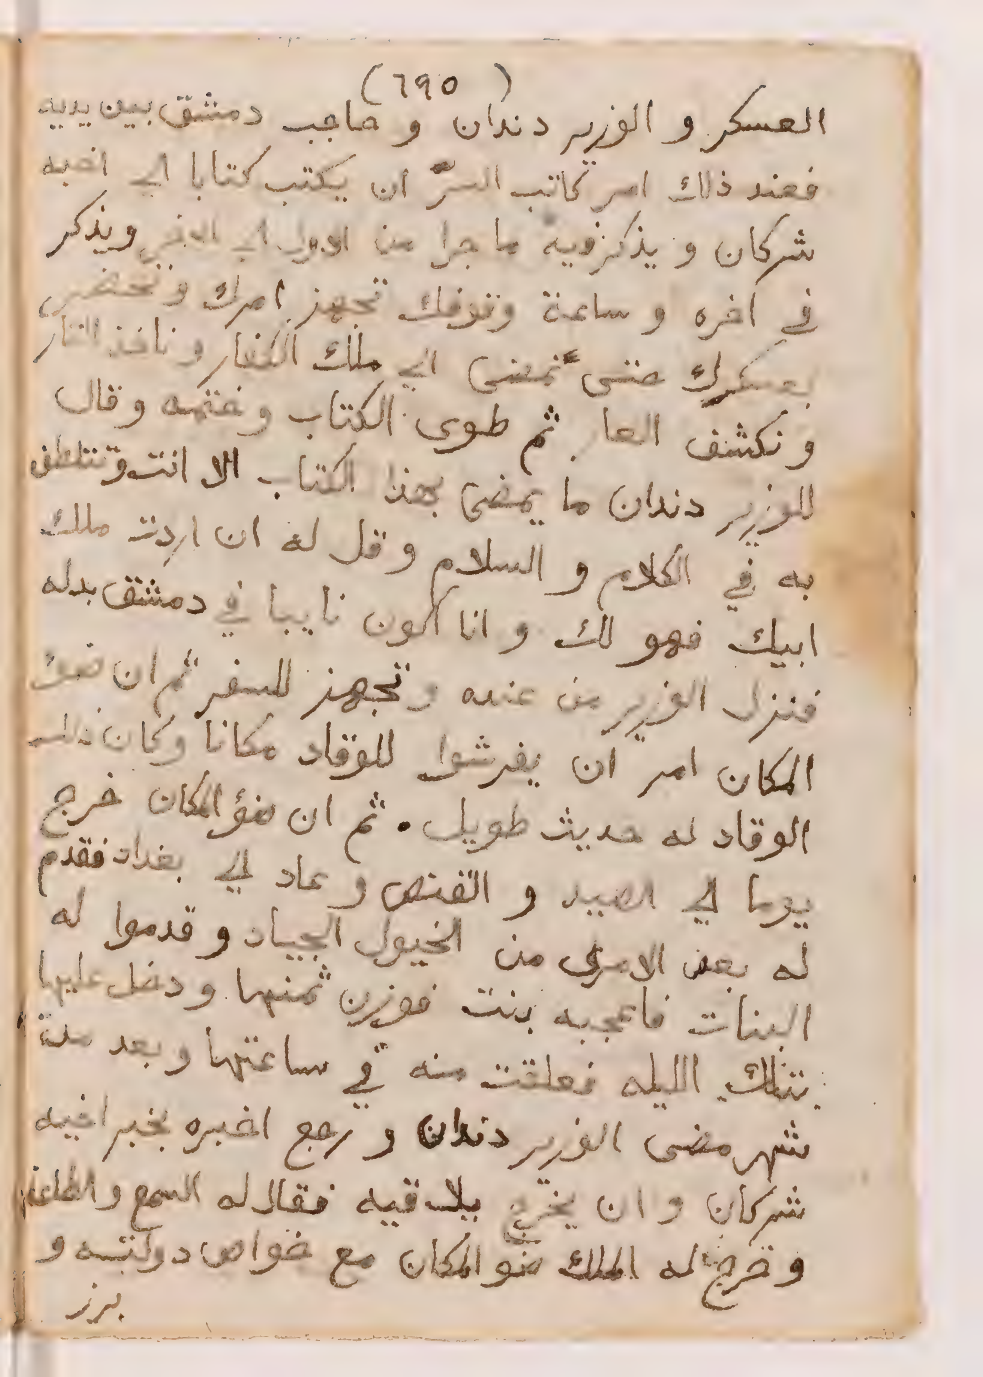 (٦٩٥)
العسكر و الوزير دندان و حاجب دمشق بين يديه
فعند ذلك امر كاتب السرّ ان يكتب كتابا الي اخيه
شركان و يذكر فيه ما جرا من الاول الي الاخر ويذكر
في اخره و ساعة وقوفك تجهز امرك و تحضر
بعسكرك حتى نمضى الي ملك الكفار و ناخذ الثار
و نكشف العار ثم طوى الكتاب وختمه وقال
للوزير دندان ما يمضى بهذا الكتاب الا انت وتتلطف
به في الكلام و السلام و قل له ان اردت ملك
ابيك فهو لك و انا اكون نايبا في دمشق بدله
فنزل الوزير من عنده و تجهز للسفر ثم ان ضوء
المكان امر ان يفرشوا للوقاد مكانا وكان ذلك
الوقاد له حديث طويل . ثم ان ضؤ المكان خرج
يوما الي الصيد و القنص و عاد الي بغداد فقدم
له بعض الامرى من الخيول الجياد و قدموا له
البنات فاعجبه بنت فوزن ثمنها ودخل عليها
تلك الليله فعلقت منه في ساعتها و بعد مدة
شهر مضى الوزير دندان و رجع اخبره بخبر اخيه
شركان و ان يخرج يلاقيه فقال له السمع والطاعة
و خرج له الملك ضو المكان مع خواص دولته و
برز